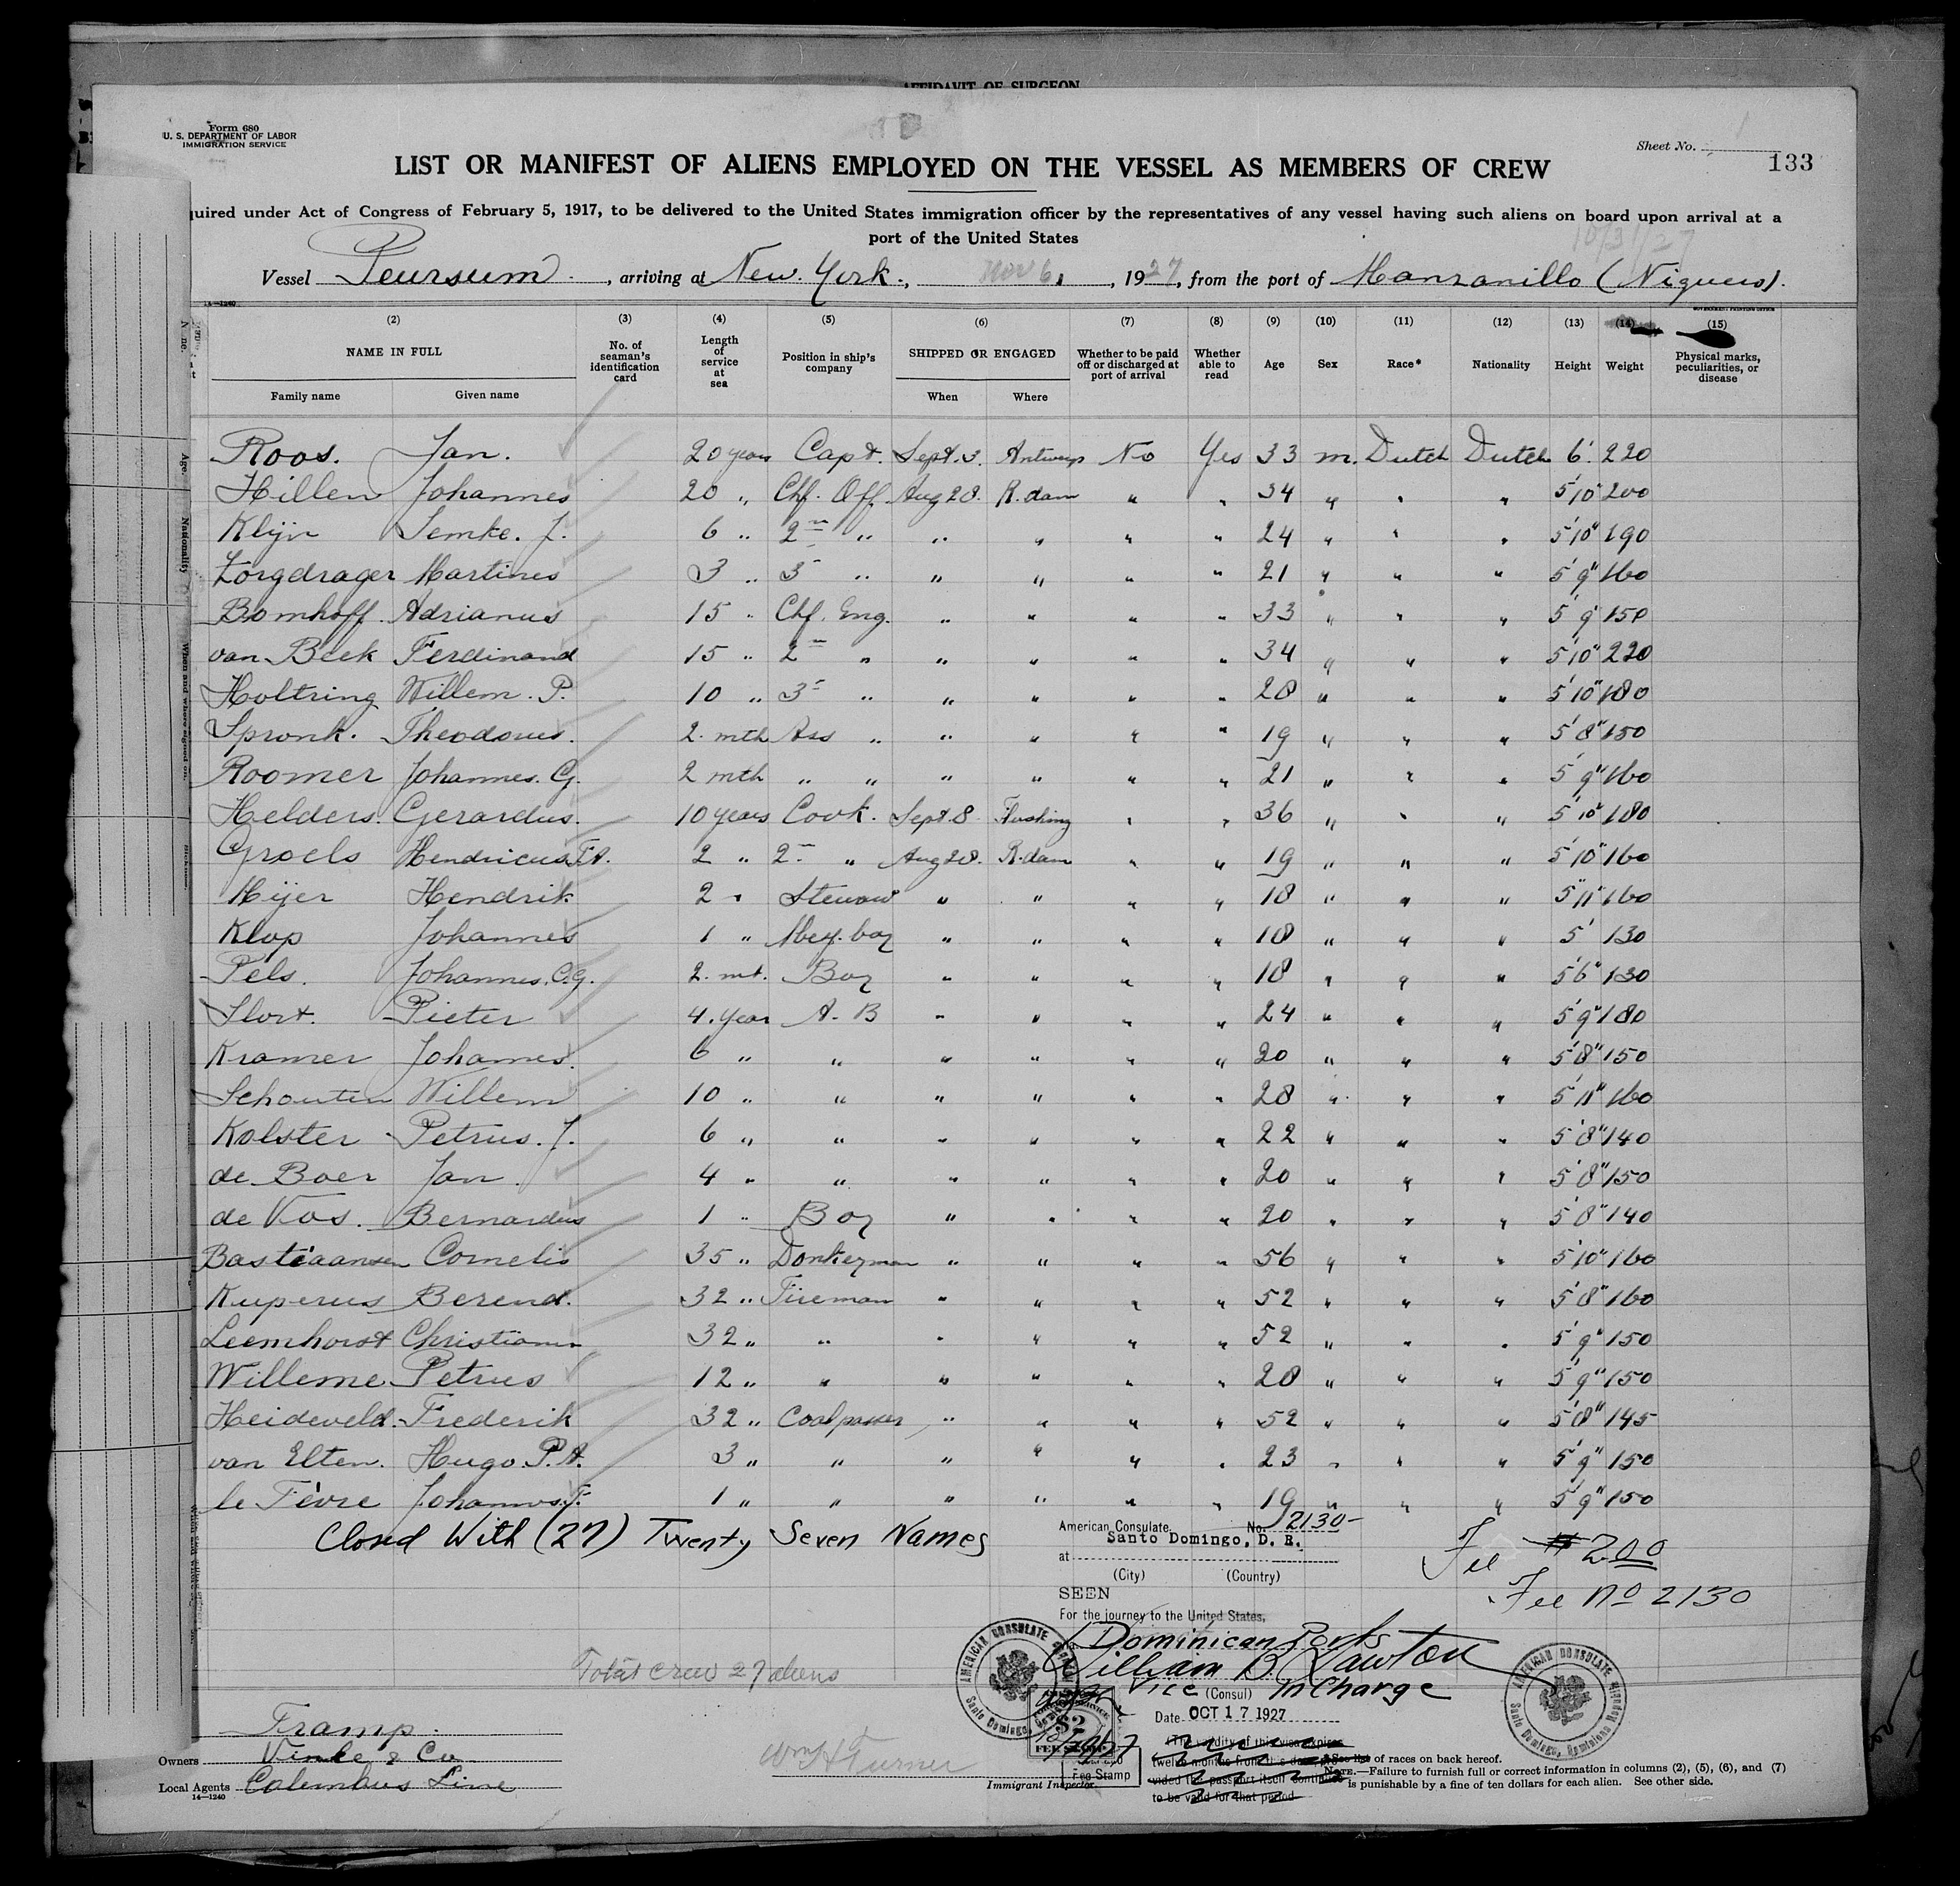 AFFIDAVIT OF SURGEON
Form 680
U. S. DEPARTMENT OF LABOR
IMMIGRATION SERVICE
Sheet No. 1
133
LIST OR MANIFEST OF ALIENS EMPLOYED ON THE VESSEL AS MEMBERS OF CREW
quired under Act of Congress of February 5, 1917, to be delivered to the United States immigration officer by the representatives of any vessel having such aliens on board upon arrival at a
port of the United States
10/31/27
Vessel Peursum, arriving at New York, Nov 6, 1927, from the port of Manzanillo (Niquero).
14—1240
GOVERNMENT PRINTING OFFICE
(2) (3) (4) (5) (6) (7) (8) (9) (10) (11) (12) (13) (14) (15)
NAME IN FULL No. of seaman's identification card Length of service at sea Position in ship's company SHIPPED OR ENGAGED Whether to be paid off or discharged at port of arrival Whether able to read Age Sex Race* Nationality Height Weight Physical marks, peculiarities, or disease
Family name Given name When Where
Roos. Jan. 20 years Capt. Sept. 3. Antwerp No Yes 33 m. Dutch Dutch 6' 220
Hillen Johannes 20 " Chf. Off. Aug 28. R.dam " " 34 " " " 5'10" 200
Klijn Semke. J. 6 " 2n " " " " " 24 " " " 5'10" 190
Zorgdrager Martines 3 " 3 " " " " " 21 " " " 5'9" 160
Bomhoff. Adrianus 15 " Chf. Eng. " " " " 33 " " " 5'9" 150
van Beek Ferdinand 15 " 2n " " " " " 34 " " " 5'10" 220
Holtring Willem. P. 10 " 3 " " " " " 28 " " " 5'10" 180
Spronk. Theodorus. 2. mth Ass " " " " " 19 " " " 5'8" 150
Roomer Johannes. G. 2 mth " " " " " " 21 " " " 5'9" 160
Helders. Gerardus. 10 years Cook. Sept. 8 Flushing " " 36 " " " 5'10" 180
Groels Hendricus F.A. 2 " 2n " Aug 28. R.dam " " 19 " " " 5'10" 160
Mijer Hendrik 2 " Steward " " " " 18 " " " 5'11" 160
Klop Johannes 1 " Mess. boy " " " " 18 " " " 5' 130
Pels. Johannes. C.G. 2. mt. Boy " " " " 18 " " " 5'6" 130
Slort. Pieter 4. year A. B " " " " 24 " " " 5'9" 180
Kramer Johannes. 6 " " " " " " 20 " " " 5'8" 150
Schouten Willem 10 " " " " " " 28 " " " 5'11" 160
Kolster Petrus. J. 6 " " " " " " 22 " " " 5'8" 140
de Boer Jan. 4 " " " " " " 20 " " " 5'8" 150
de Vos. Bernardus 1 " Boy " " " " 20 " " " 5'8" 140
Bastiaansen Cornelis 35 " Donkeyman " " " " 56 " " " 5'10" 160
Kuperus Berend. 32 " Fireman " " " " 52 " " " 5'8" 160
Leemhorst Christiaan 32 " " " " " " 52 " " " 5'9" 150
Willeme Petrus 12 " " " " " " 28 " " " 5'9" 150
Heideveld. Frederik 32 " Coalpasser " " " " 52 " " " 5'8" 145
van Elten. Hugo. P.A. 3 " " " " " " 23 " " " 5'9" 150
le Févre Johannes. F. 1 " " " " " " 19 " " " 5'9" 150
Closed With (27) Twenty Seven Names
American Consulate. No. 2130-
at Santo Domingo, D. R.
(City) (Country)
SEEN
For the journey to the United States,
Via Dominican Ports
William B. Lawton
Vice (Consul) in Charge
Date OCT 17 1927
Fee $2.00
Fee No 2130
AMERICAN CONSULATE
Santo Domingo, Dominican Republic
AMERICAN CONSULATE
Santo Domingo, Dominican Republic
$2
FEE STAMP
Fee Stamp
The validity of this visa expires
twelve months from this date, pro-
vided the passport itself continues
to be valid for that period.
Total crew 27 aliens
Tramp.
Owners Vinke & Co
Local Agents Columbus Line
14—1240
Wm H Turner
Immigrant Inspector.
* See list of races on back hereof.
NOTE.—Failure to furnish full or correct information in columns (2), (5), (6), and (7)
is punishable by a fine of ten dollars for each alien. See other side.